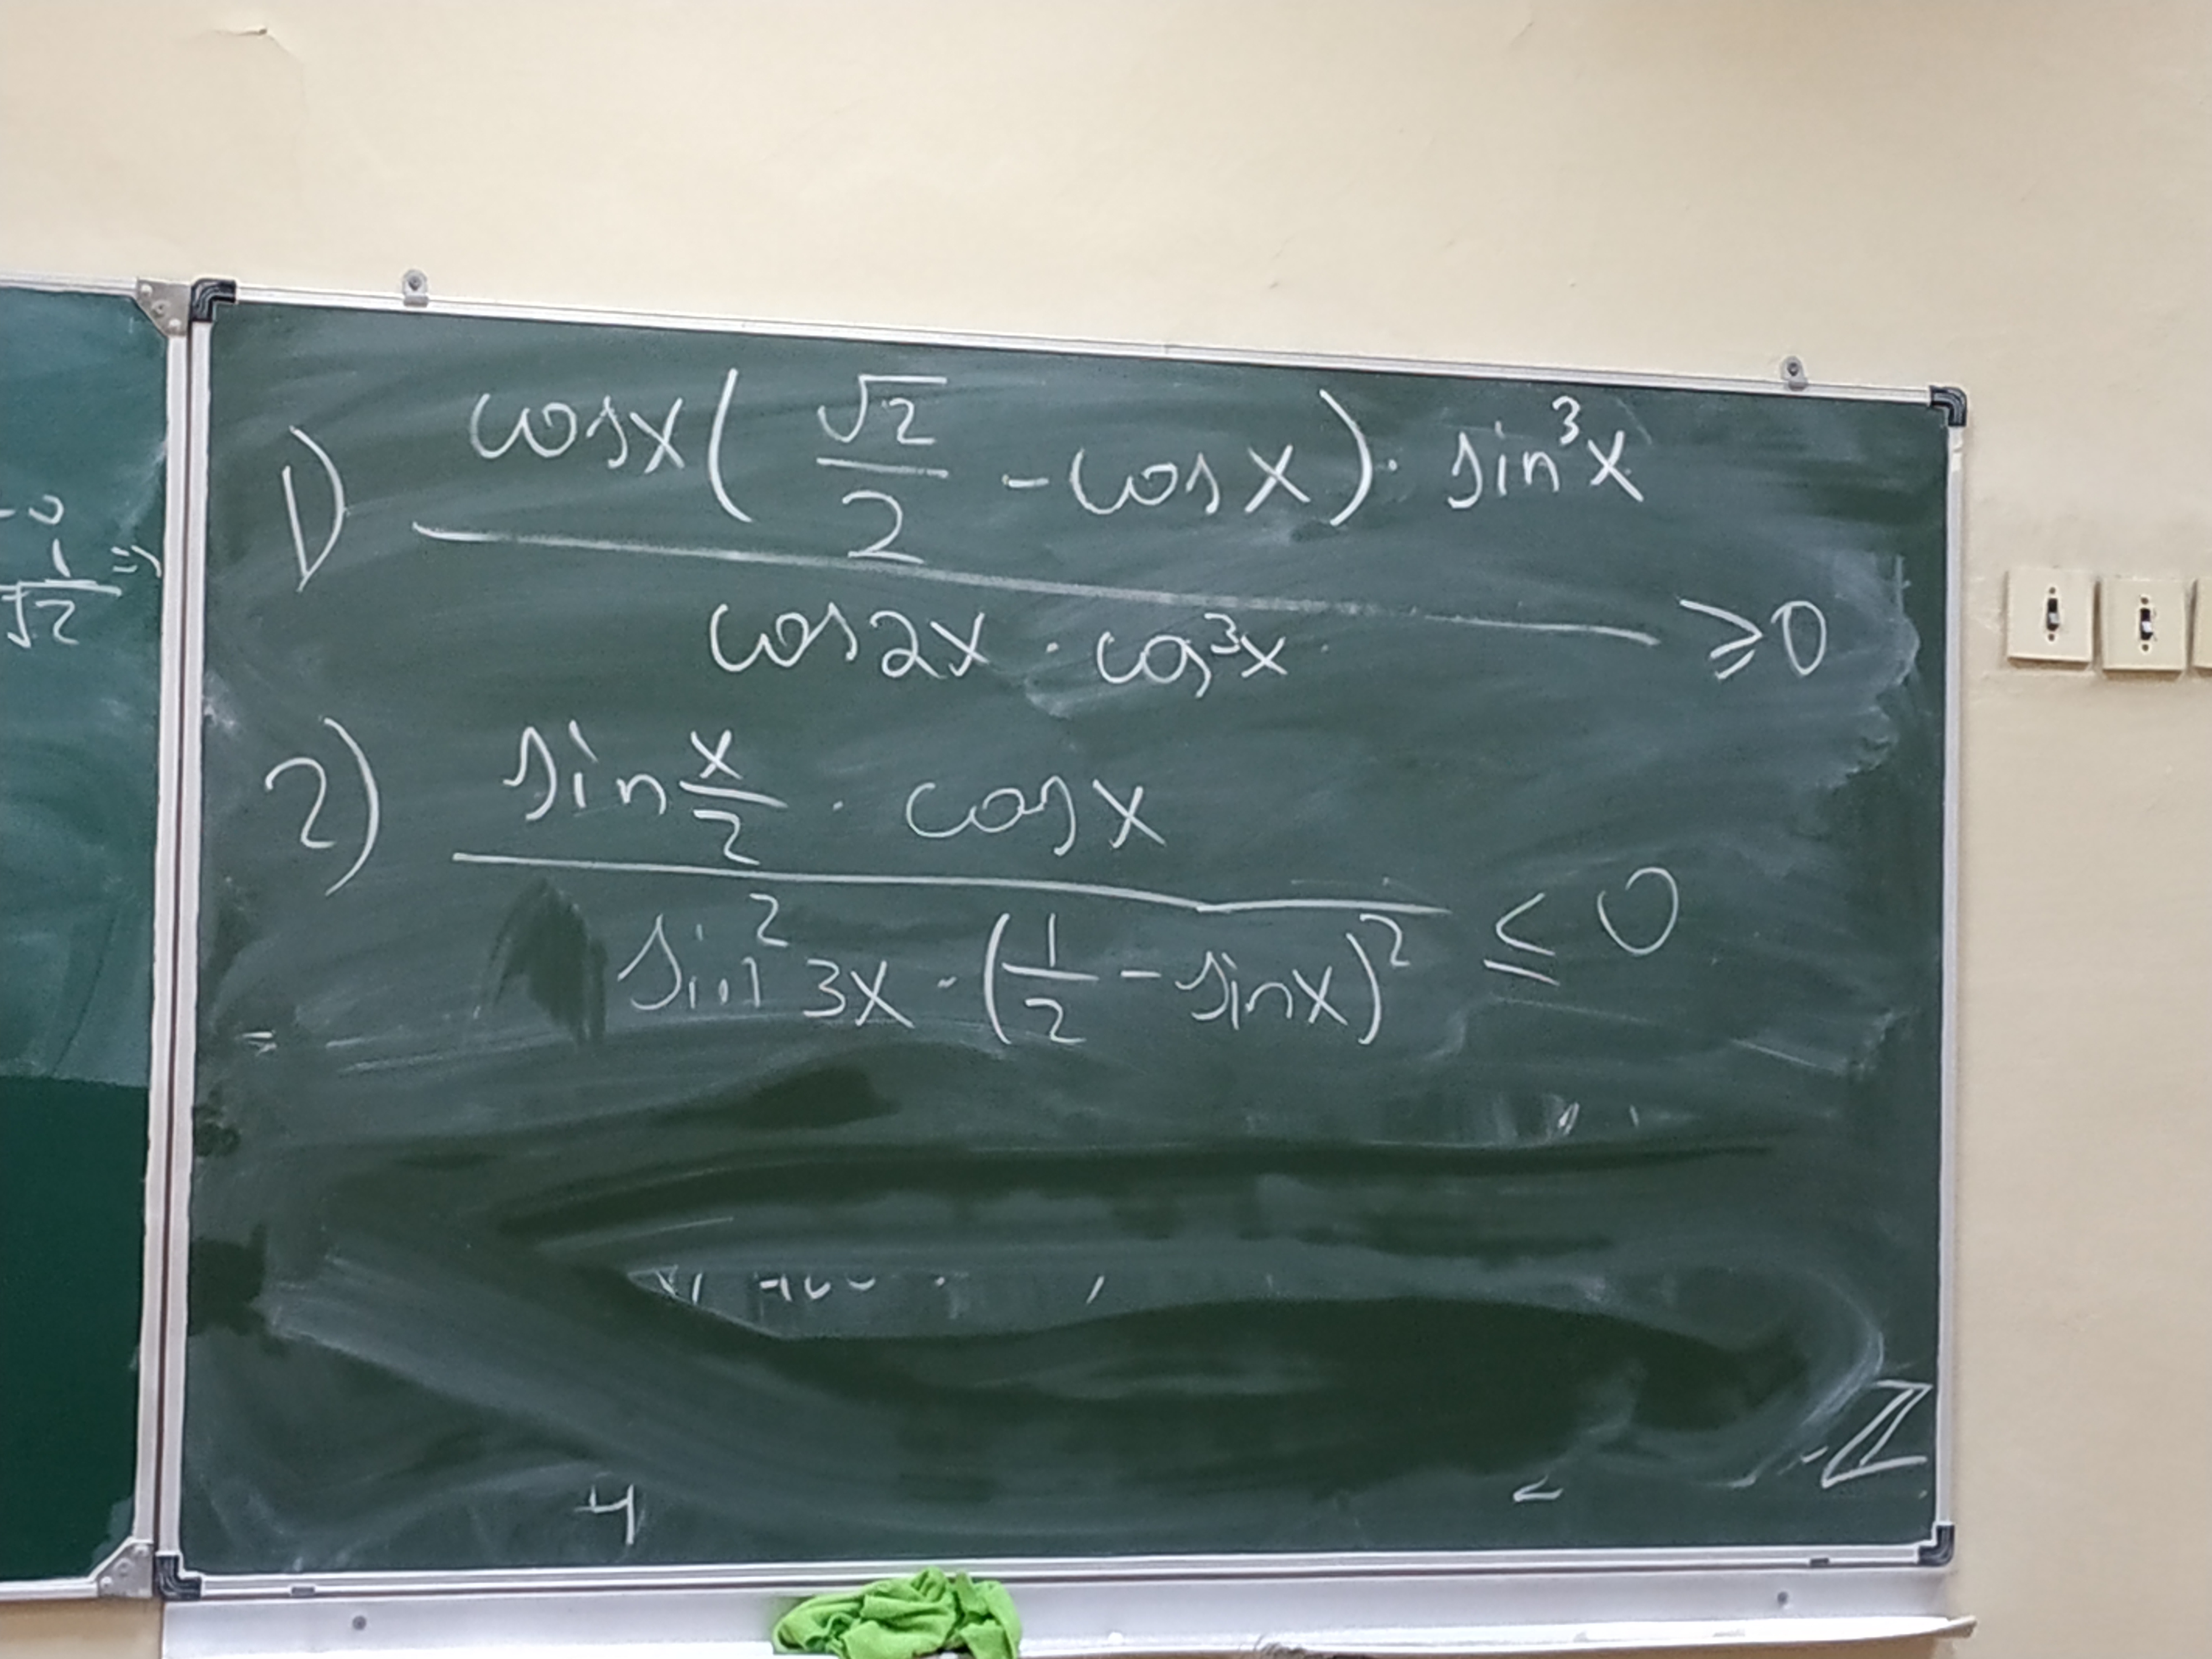 1) cosx(√2/2 - cosx)· sin³x / cos2x · cos³x ≥0
2) sin x/2 · cosx / sin²3x · (1/2 - sinx)² ≤ 0
1/√2 =>
4
Z